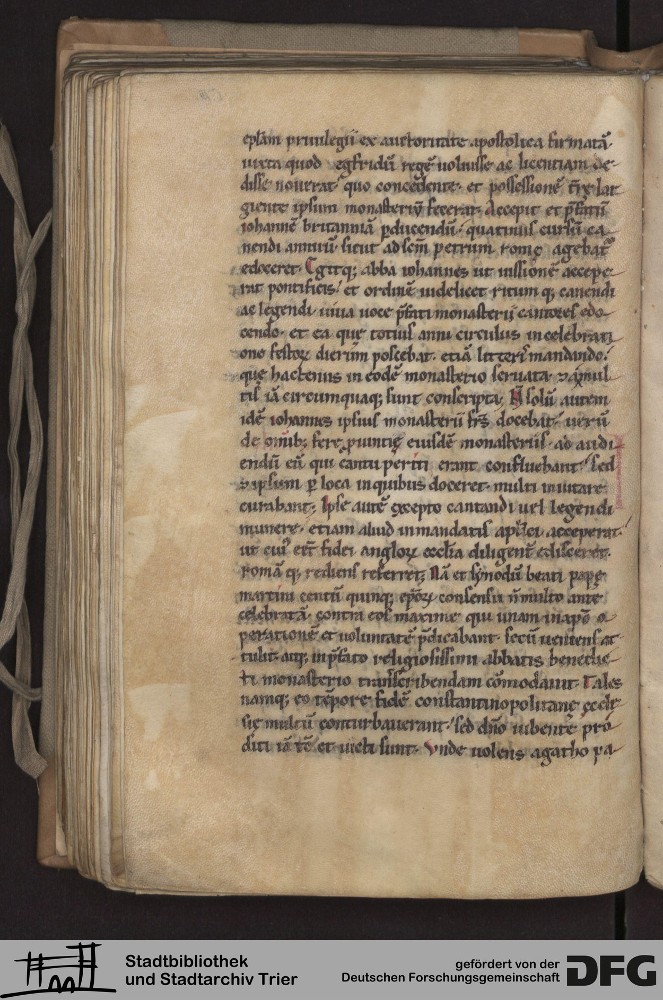 eplãm priuilegii ex auctoritate apostolica firmatã.
iuxta quod egfridũ regẽ uoluisse ac licentiam de-
disse nouerat. quo concedente. et possessionẽ trẽ lar
giente ipsum monasteriũ fecerat. Accepit et p̃fatũ
iohannẽ britanniã ꝑducendũ. quatinus cursũ ca
nendi annuũ. sicut ad scm̃ petrum romę agebat᷑
edoceret. Egitq; abba iohannes ut iussionẽ accepe
rat pontificis. et ordinẽ uidelicet ritum q; canendi
ac legendi. uiua uoce p̃fati monasterii cantores edo
cendo. et ea quę totius anni circulus in celebrati
one festoꝝ dierũm poscebat. etiã litteris mandando.
quę hactenus in eodẽ monasterio seruata. ⁊ a mul
tis iã circumquaq; sunt conscripta. Ñ solũ autem
idẽ iohannes ipsius monasterii frs̃ docebat. uerũ
de omĩb; fere ꝓuintię eiusdẽ monasteriis. ad audi
endũ eũ qui cantu periti erant confluebant. sed
⁊ ipsum ꝑ loca in quibus doceret. multi inuitare
curabant. Ipse autẽ excepto cantandi uel legendi
munere. etiam aliud in mandatis apl̃ici acceperat.
ut cui᷒ eẽt fidei angloꝝ ecclia diligent̃ edisceret.
romã q; rediens referret. Nã et synodũ beati papę
martini centũ quinq; epõꝝ consensu ñ multo ante
celebratã. contra eos maxime qui unam in xp̃o o
perationẽ et uoluntatẽ p̃dicabant. secũ ueniens at
tulit. atq; in p̃fato religiosissimi abbatis benedic-
ti monasterio transcribendam cõmodauit. Tales
namq; eo tẽpore fidẽ constantinopolitanę ęccle
się multũ conturbauerant. sed dño iubente pro
diti iã tc̃ et uicti sunt. Vnde uolens agatho pa-
Stadtbibliothek
und Stadtarchiv Trier
gefördert von der
Deutschen Forschungsgemeinschaft
DFG